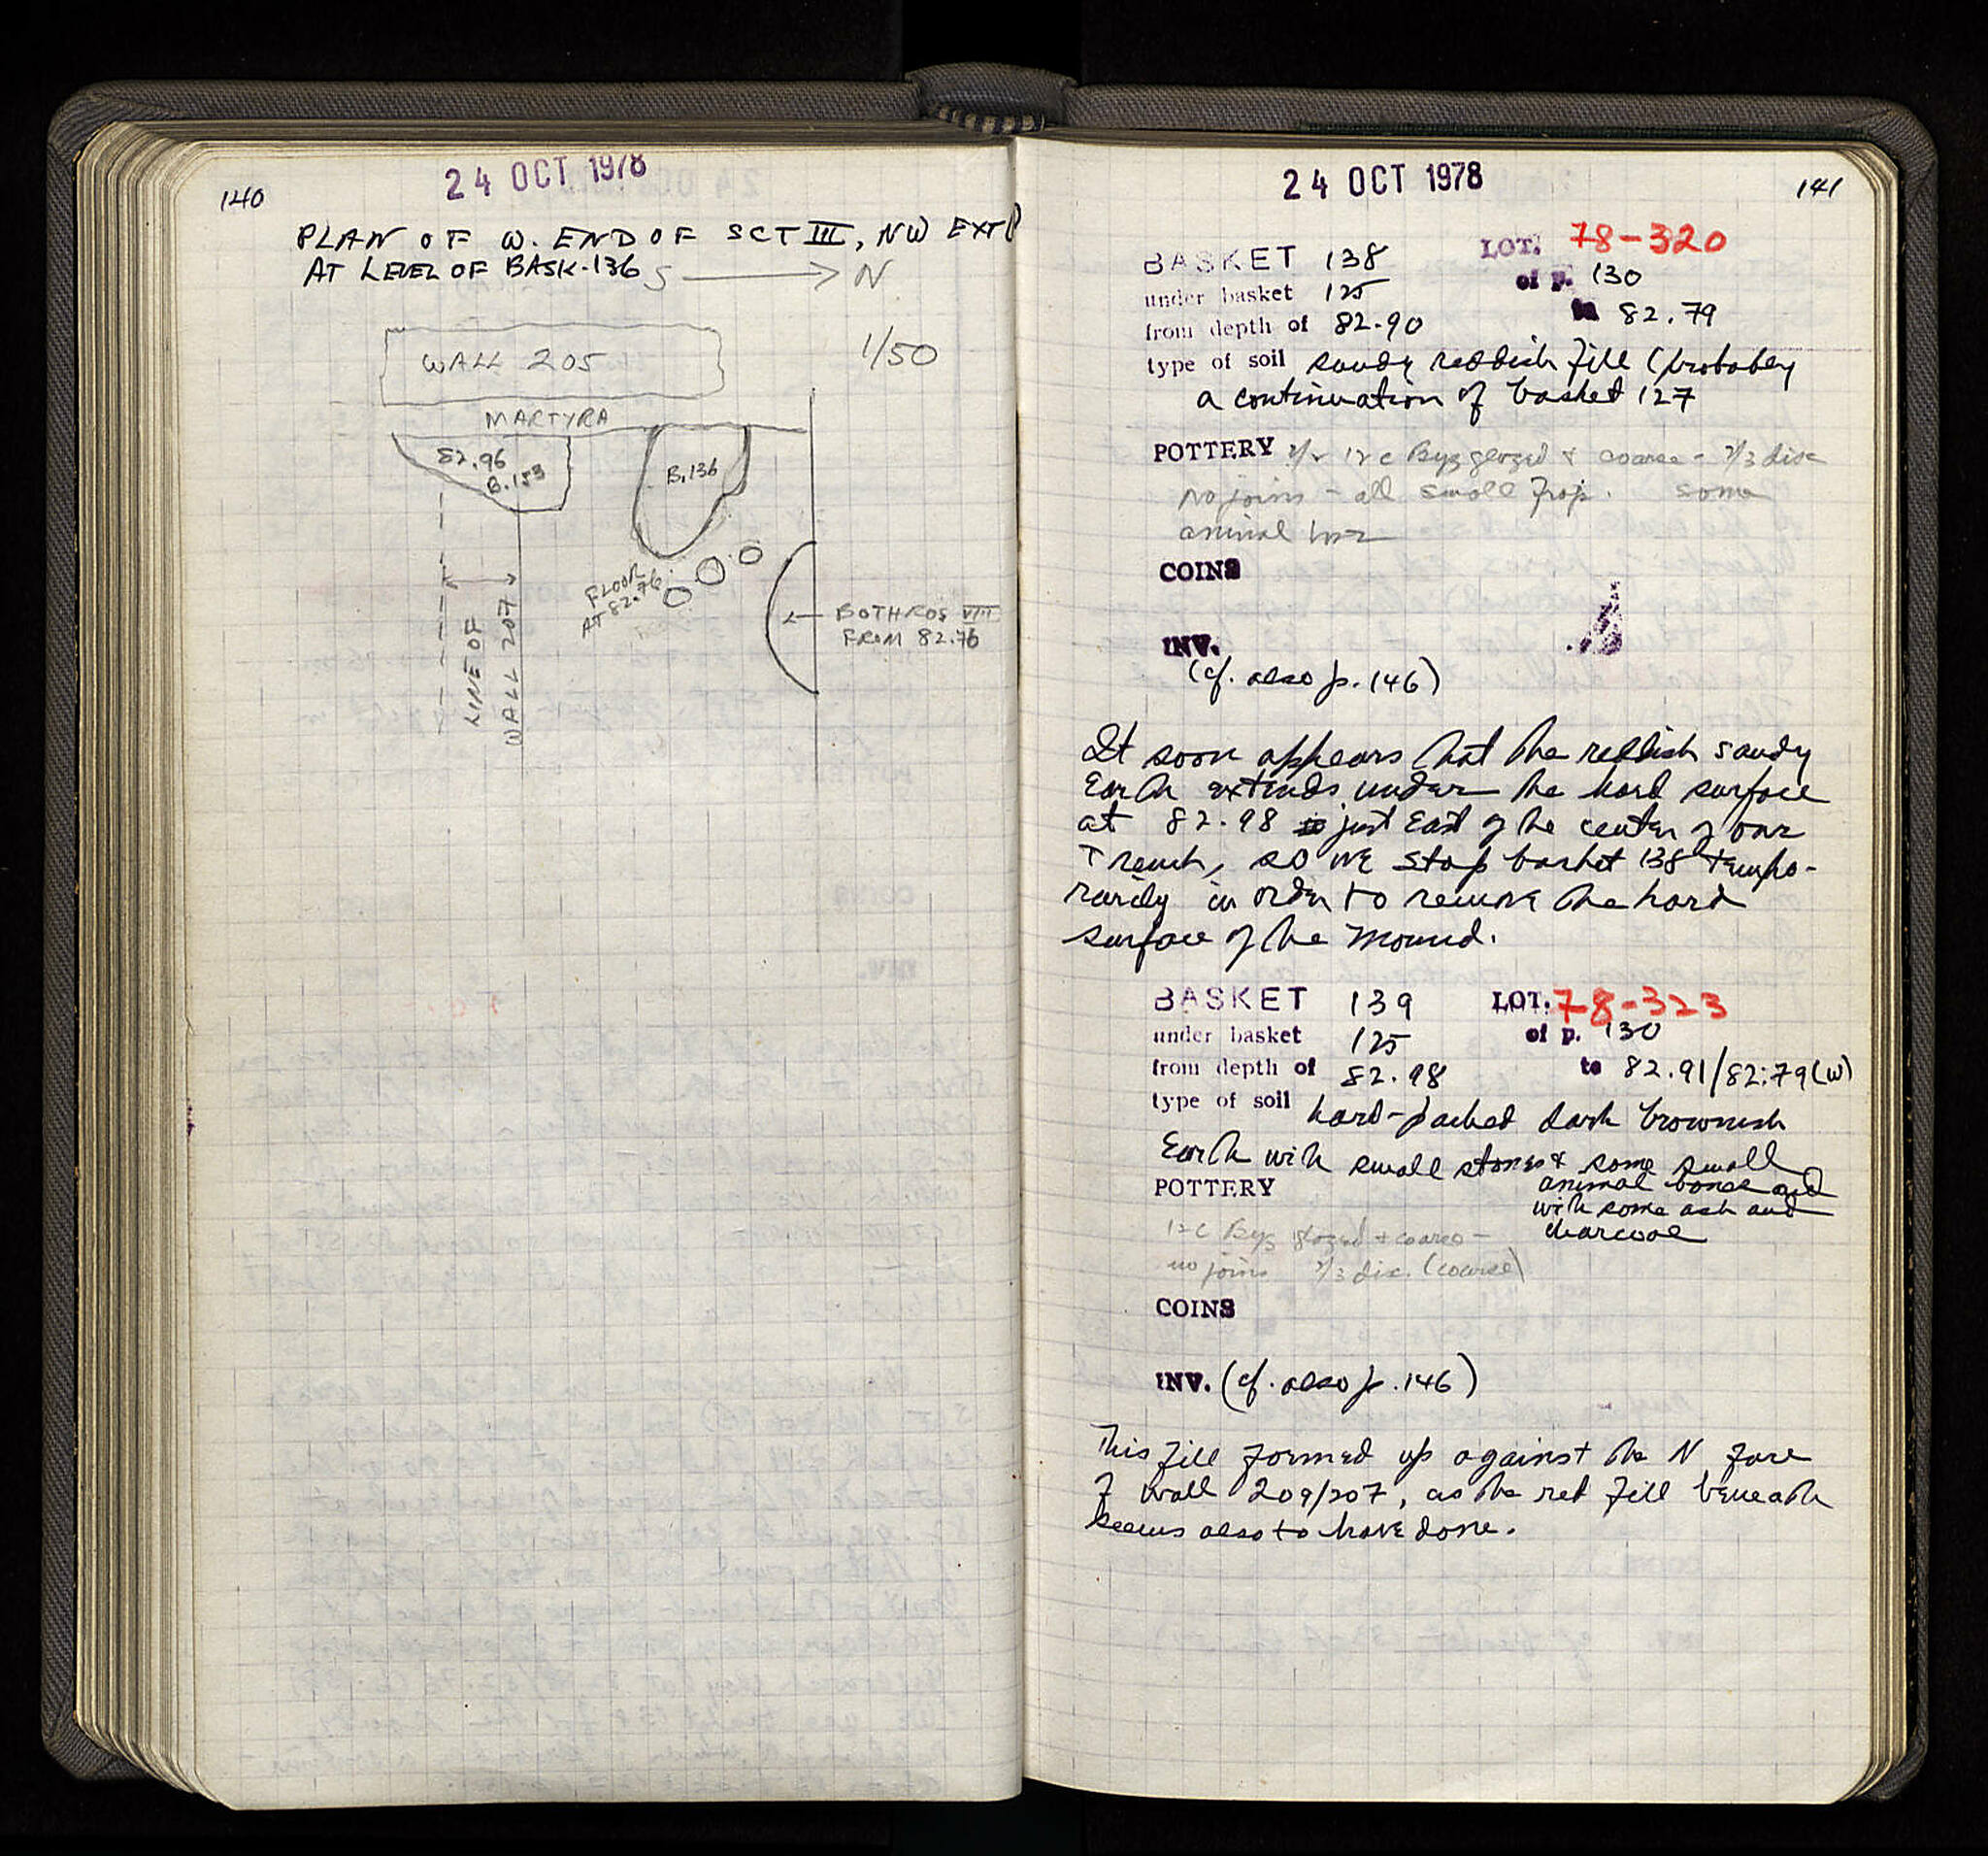 140
24 OCT 1978
PLAN OF W. END OF SCT III, NW EXT
AT LEVEL OF BASK. 136 S → N
1/50
WALL 205
MARTYRA
82.96
B. 133
B. 136
FLOOR
AT 82.76
BOTHROS VIII
FROM 82.76
LINE OF
WALL 207
24 OCT 1978
141
BASKET 138 LOT. 78-320
under basket 125 of p. 130
from depth of 82.90 to 82.79
type of soil sandy reddish fill (probably
a continuation of basket 127
POTTERY 12 c Byz glazed & coarse - 2/3 disc
no joins - all small frag. some
animal bone
COINS
INV.
(cf. also p. 146)
It soon appears that the reddish sandy
Earth extends under the hard surface
at 82.98 just East of the center of our
Trench, so we stop basket 138 tempo-
rarily in order to remove the hard
surface of the mound.
BASKET 139 LOT. 78-323
under basket 125 of p. 130
from depth of 82.98 to 82.91/82.79(W)
type of soil hard-packed dark brownish
Earth with small stones & some small
animal bones and
with some ash and
charcoal
POTTERY
12 C Byz glazed + coarse -
no joins 2/3 disc. (coarse)
COINS
INV. (cf. also p. 146)
This fill formed up against the N face
of wall 209/207, as the red fill beneath
seems also to have done.